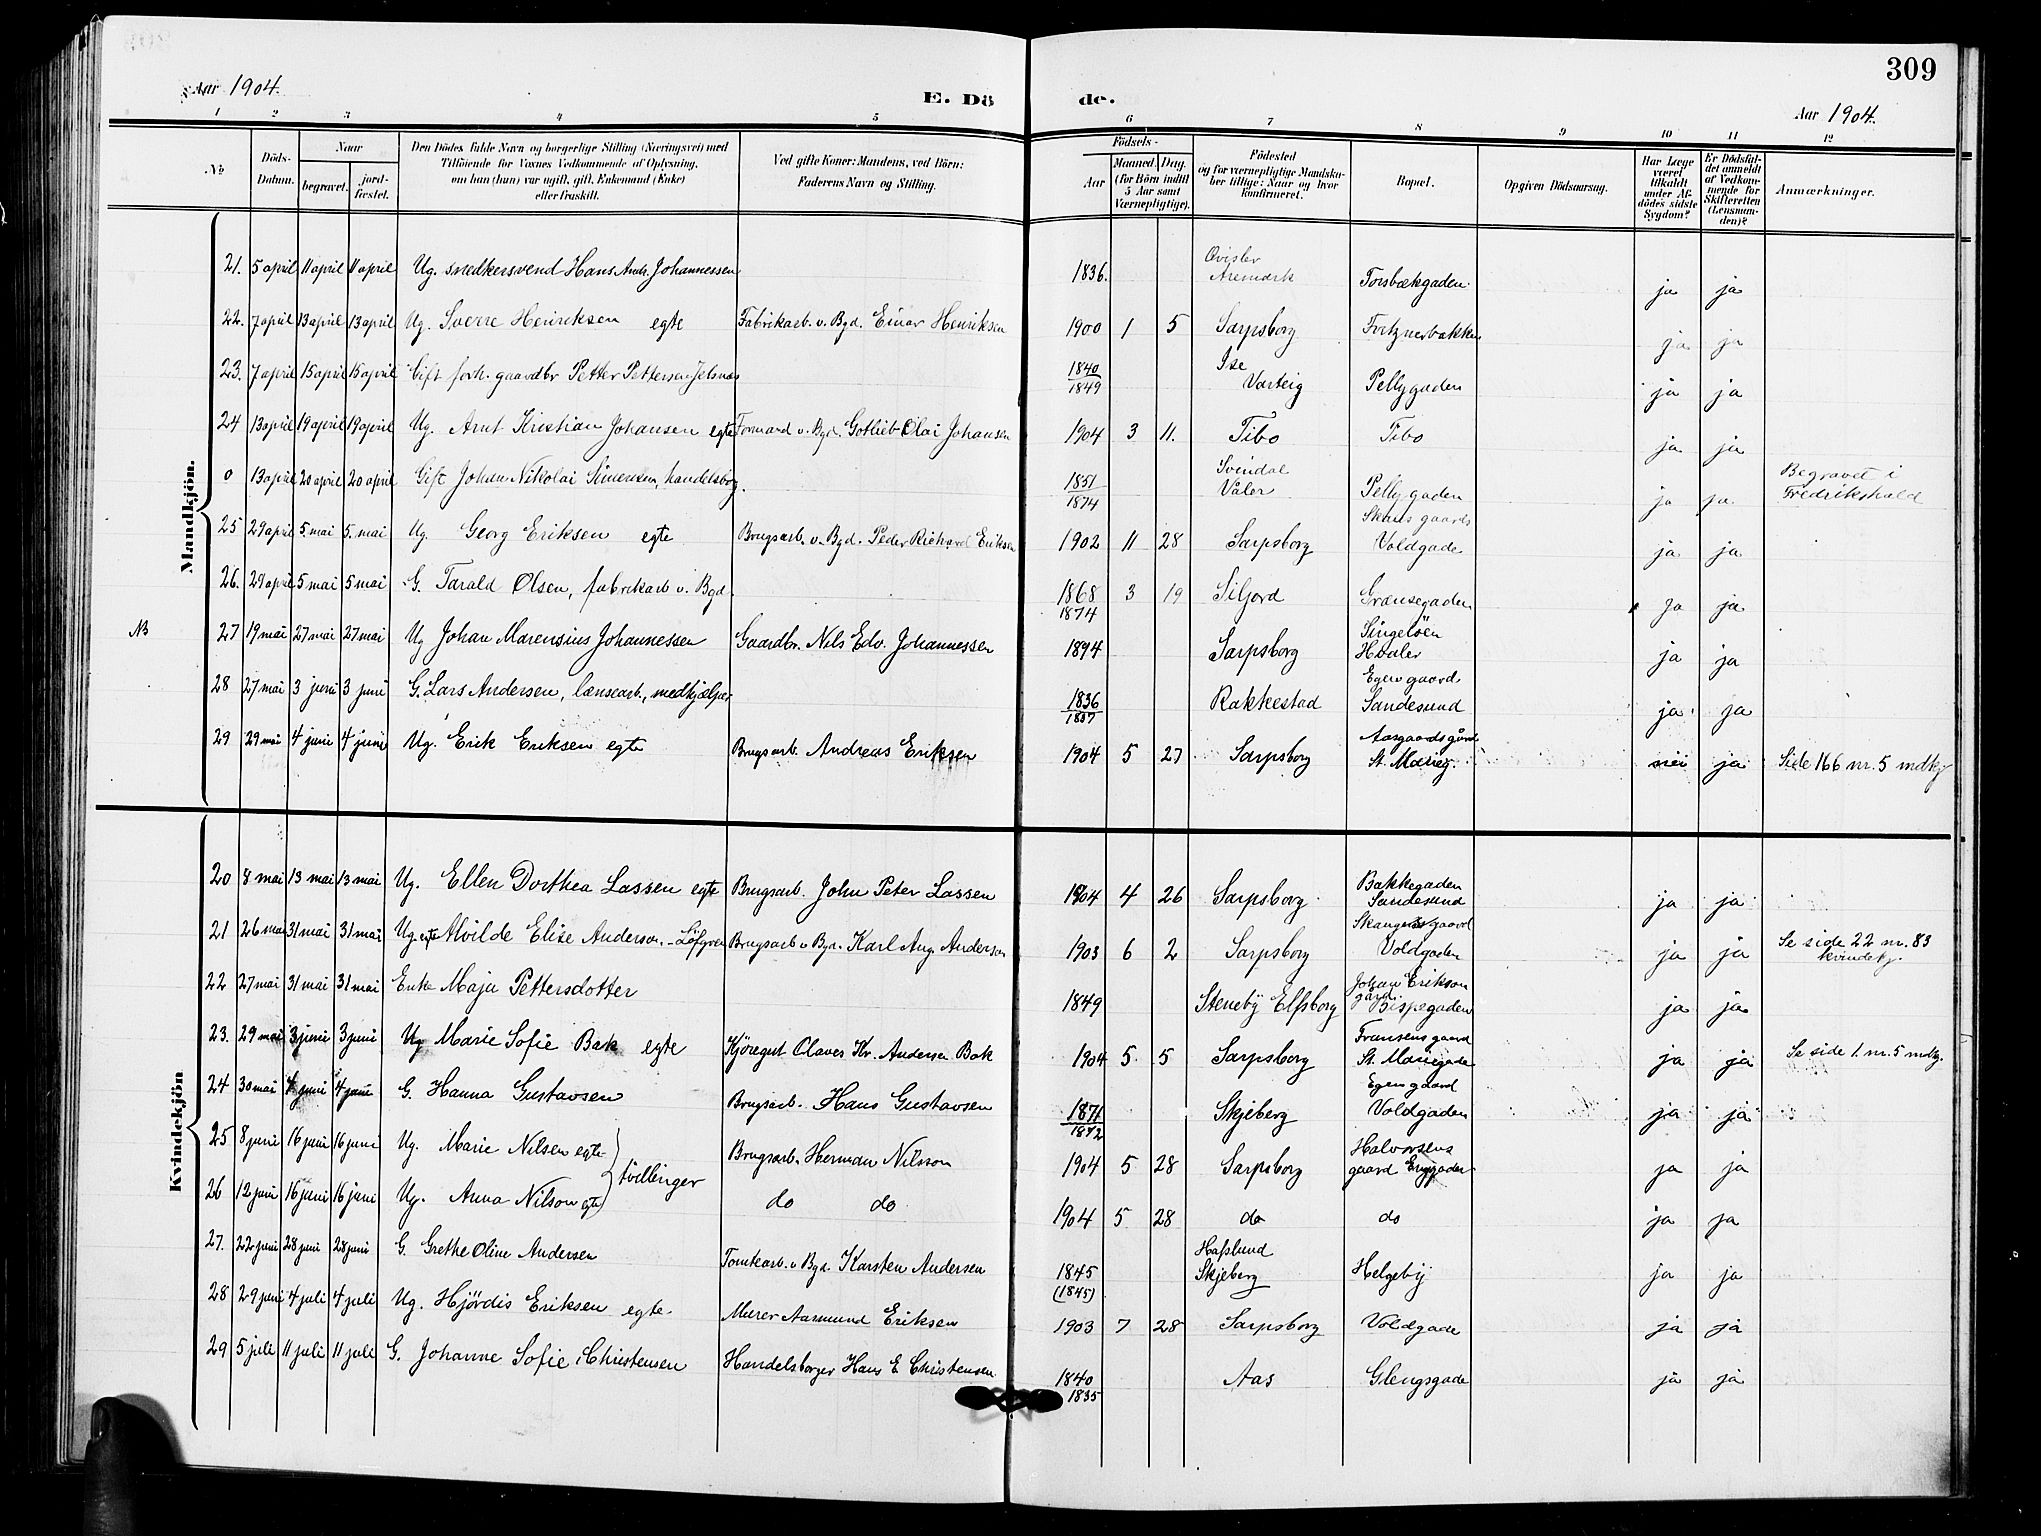 309
Aar 1904.
E. Dö
de.
Aar 1904.
1 2 3 4 5 6 7 8 9 10 11 12
No
Döds-Datum.
Naar
begravet.
jord-fæstet.
Den Dödes fulde Navn og borgerlige Stilling (Næringsvei) med
Tilföiende for Voxnes Vedkommende af Oplysning,
om han (hun) var ugift, gift, Enkemand (Enke)
eller fraskilt.
Ved gifte Koner: Mandens, ved Börn:
Faderens Navn og Stilling.
Födsels-
Aar
Maaned. Dag.
(for Börn indtil
5 Aar samt
Værnepligtige).
Födested
og for værnepligtige Mandska-
ber tillige: Naar og hvor
konfirmeret.
Bopæl.
Opgiven Dödsaarsag.
Har Læge
været
tilkaldt
under Af-
dödes sidste
Sygdom?
Er Dödsfal-
det anmeldt
af Vedkom-
mende for
Skifteretten
(Lensman-
den)?
Anmærkninger.
Mandkjön.
21. 5 april 11 april 11 april Ug. snedkersvend Hans Andr. Johannessen 1836. Aremark Torsbækgaden ja ja
22. 7 april 13 april 13 april Ug. Sverre Henriksen egte Fabrikarb. v. Bgd. Einar Henriksen 1900 1 5 Sarpsborg Fritznerbakken ja ja
23. 7 april 15 april 15 april Gift forh. gaardbr Petter Pettersen Jelsnæs 1840 1849 Ise Varteig Pellygaden ja ja
24 13 april 19 april 19 april Ug. Arnt Kristian Johansen egte Formand v. Bgd. Gotlieb Olai Johansen 1904 3 11. Tibo Tibo ja ja
0 13 april 20 april 20 april Gift Johan Nikolai Simensen, handelsborg. 1851 1874 Svindal Våler Pellygaden ja ja. Begravet i Fredrikshald
25 29 april 5. mai 5. mai Ug. Georg Eriksen egte Brugsarb. v. Bgd. Peder Richard Eriksen 1902 11 28 Sarpsborg Skaus gaard Voldgade ja ja
26. 29 april 5 mai 5 mai G. Tarald Olsen, fabrikarb v. Bgd. 1868 1874 3 19 Siljord Grænsegaden ja ja
NB 27 19 mai 27 mai 27 mai Ug Johan Marensius Johannessen Gaardbr. Nils Edv. Johannessen 1894 Sarpsborg Singelöen Hvaler ja ja
28 27 mai 3 juni 3 juni G. Lars Andersen, lænsearb., medhjælper 1836 Rakkestad Egen gaard Sandesund ja ja
29 29 mai 4 juni 4 juni Ug. Erik Eriksen egte Brugsarb. Andreas Eriksen 1904 5 27 Sarpsborg Aasgaards gård St. Marieg. nei ja Side 166 nr. 5 mdkj
Kvindekjön
20 8 mai 13 mai 13 mai Ug. Ellen Dorthea Lassen egte Brugsarb. John Peter Lassen 1904 4 26 Sarpsborg Bakkegaden Sandesund ja ja
21 26 mai 31 mai 31 mai Ug. egte Alvilde Elise Anderson - Löfgren Brugsarb v Bgd. Karl Aug. Anderson 1903 6 2 Sarpsborg gaard Voldgaden ja ja Se side 22 nr. 83 kvindekj.
22 27 mai 31 mai 31 mai Enke Maja Pettersdotter 1849 Steneby Elfsborg Johan Erikson gård Bispegaden ja ja
23. 29 mai 3 juni 3 juni Ug Marie Sofie Bak egte Kjöregut Olaves Kr. Andersen Bak 1904 5. 5 Sarpsborg Fransens gaard St. Mariegade ja ja Se side 1. nr. 5 mdkj.
24 30 mai 4 juni 4 juni G. Hanna Gustavsen Brugsarb. Hans Gustavsen 1871 1872 Skjeberg Egen gaard Voldgaden ja ja
25 8 juni 16 juni 16 juni Ug. Marie Nilsen egte tvillinger Brugsarb. Herman Nilsson 1904 5 28 Sarpsborg Halvorsens gaard Enggaden ja ja
26 12 juni 16 juni 16 juni Ug. Anna Nilson egte do do 1904 5 28 do do ja ja
27. 22 juni 28 juni 28 juni G. Grethe Oline Andersen Tomtearb. v Bgd. Karsten Andersen 1845 (1845) Hafslund Skjeberg Helgeby ja ja
28 29 juni 4 juli 4 juli Ug. Hjördis Eriksen egte. Murer Aasmund Eriksen 1903 7 28 Sarpsborg Voldgade ja ja
29 5 juli 11 juli 11 juli G. Johanne Sofie Christensen Handelsborger Hans E Christensen 1840 1835 Aas Glengsgade ja ja